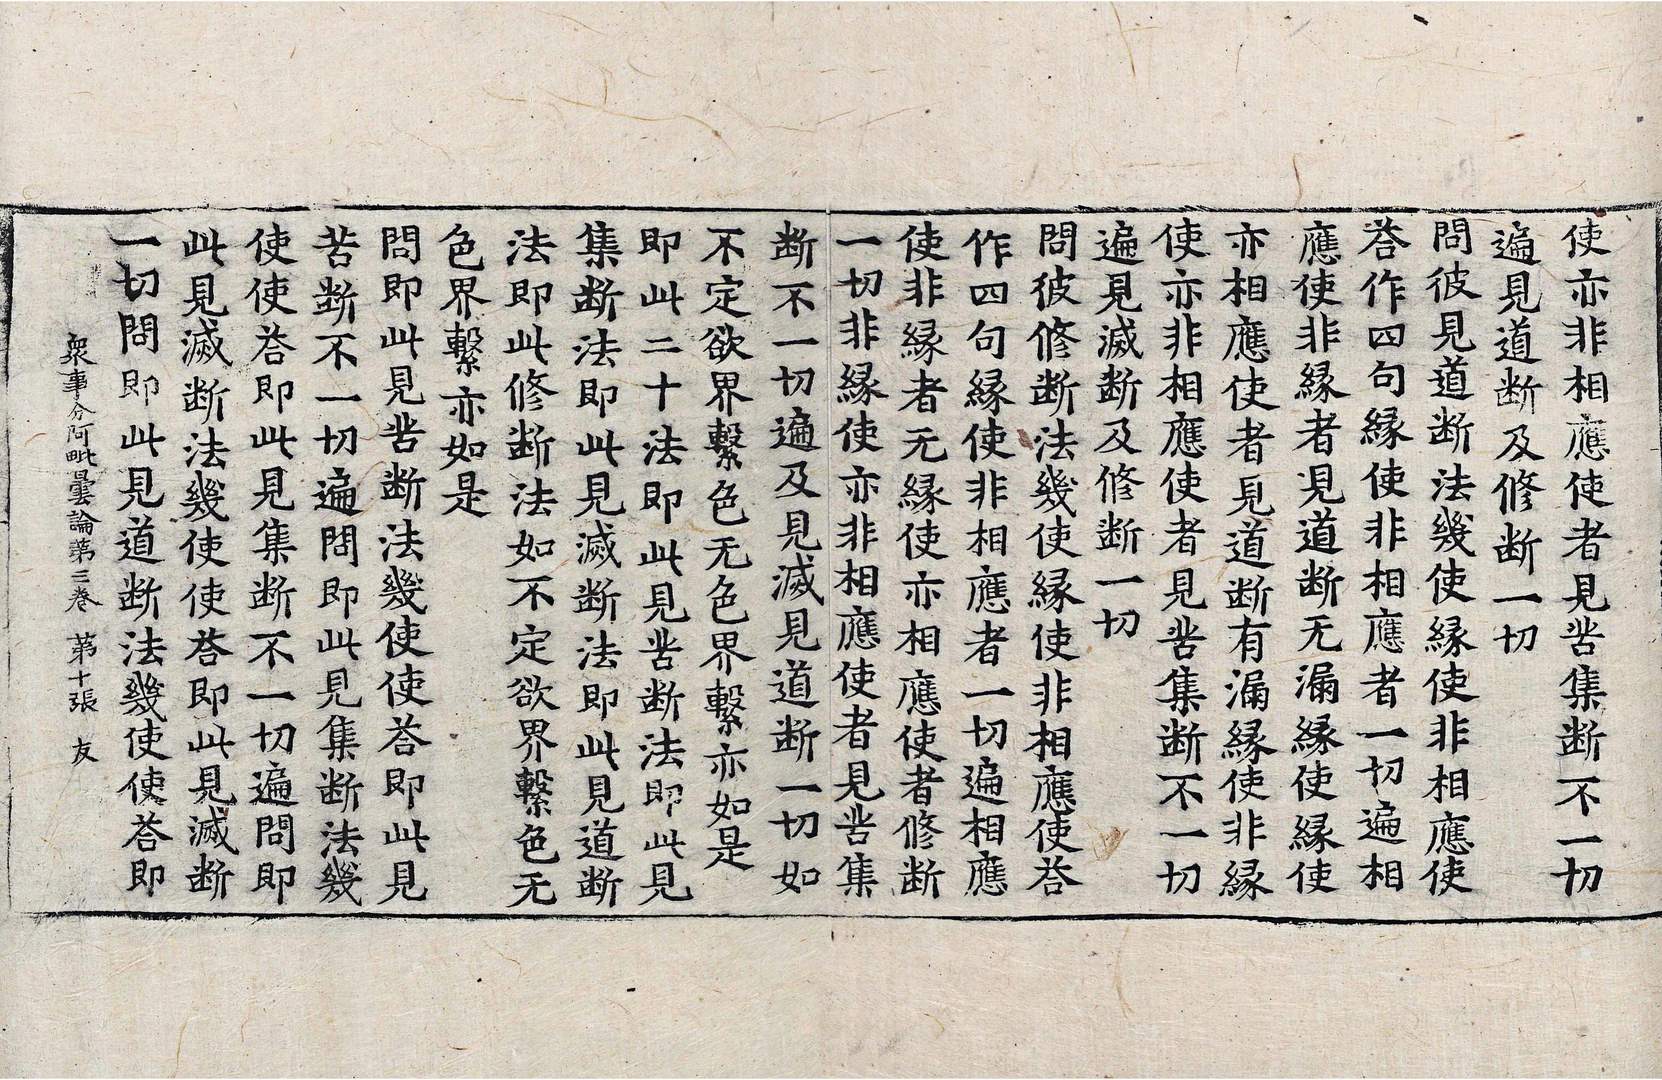 使亦非相應使者見苦集断不一切
遍見道断及修断一切
問彼見道断法幾使縁使非相應使
荅作四句縁使非相應者一切遍相
應使非縁者見道断无漏縁使縁使
亦相應使者見道断有漏縁使非縁
使亦非相應使者見苦集断不一切
遍見滅断及修断一切
問彼修断法幾使縁使非相應使荅
作四句縁使非相應者一切遍相應
使非縁者无縁使亦相應使者修断
一切非縁使亦非相應使者見苦集
断不一切遍及見滅見道断一切如
不定欲界繫色无色界繫亦如是
即此二十法即此見苦断法即此見
集断法即此見滅断法即此見道断
法即此修断法如不定欲界繫色无
色界繫亦如是
問即此見苦断法幾使使荅即此見
苦断不一切遍問即此見集断法幾
使使荅即此見集断不一切遍問即
此見滅断法幾使使荅即此見滅断
一切問即此見道断法幾使使荅即
衆事分阿毗曇論第三卷 第十張 友